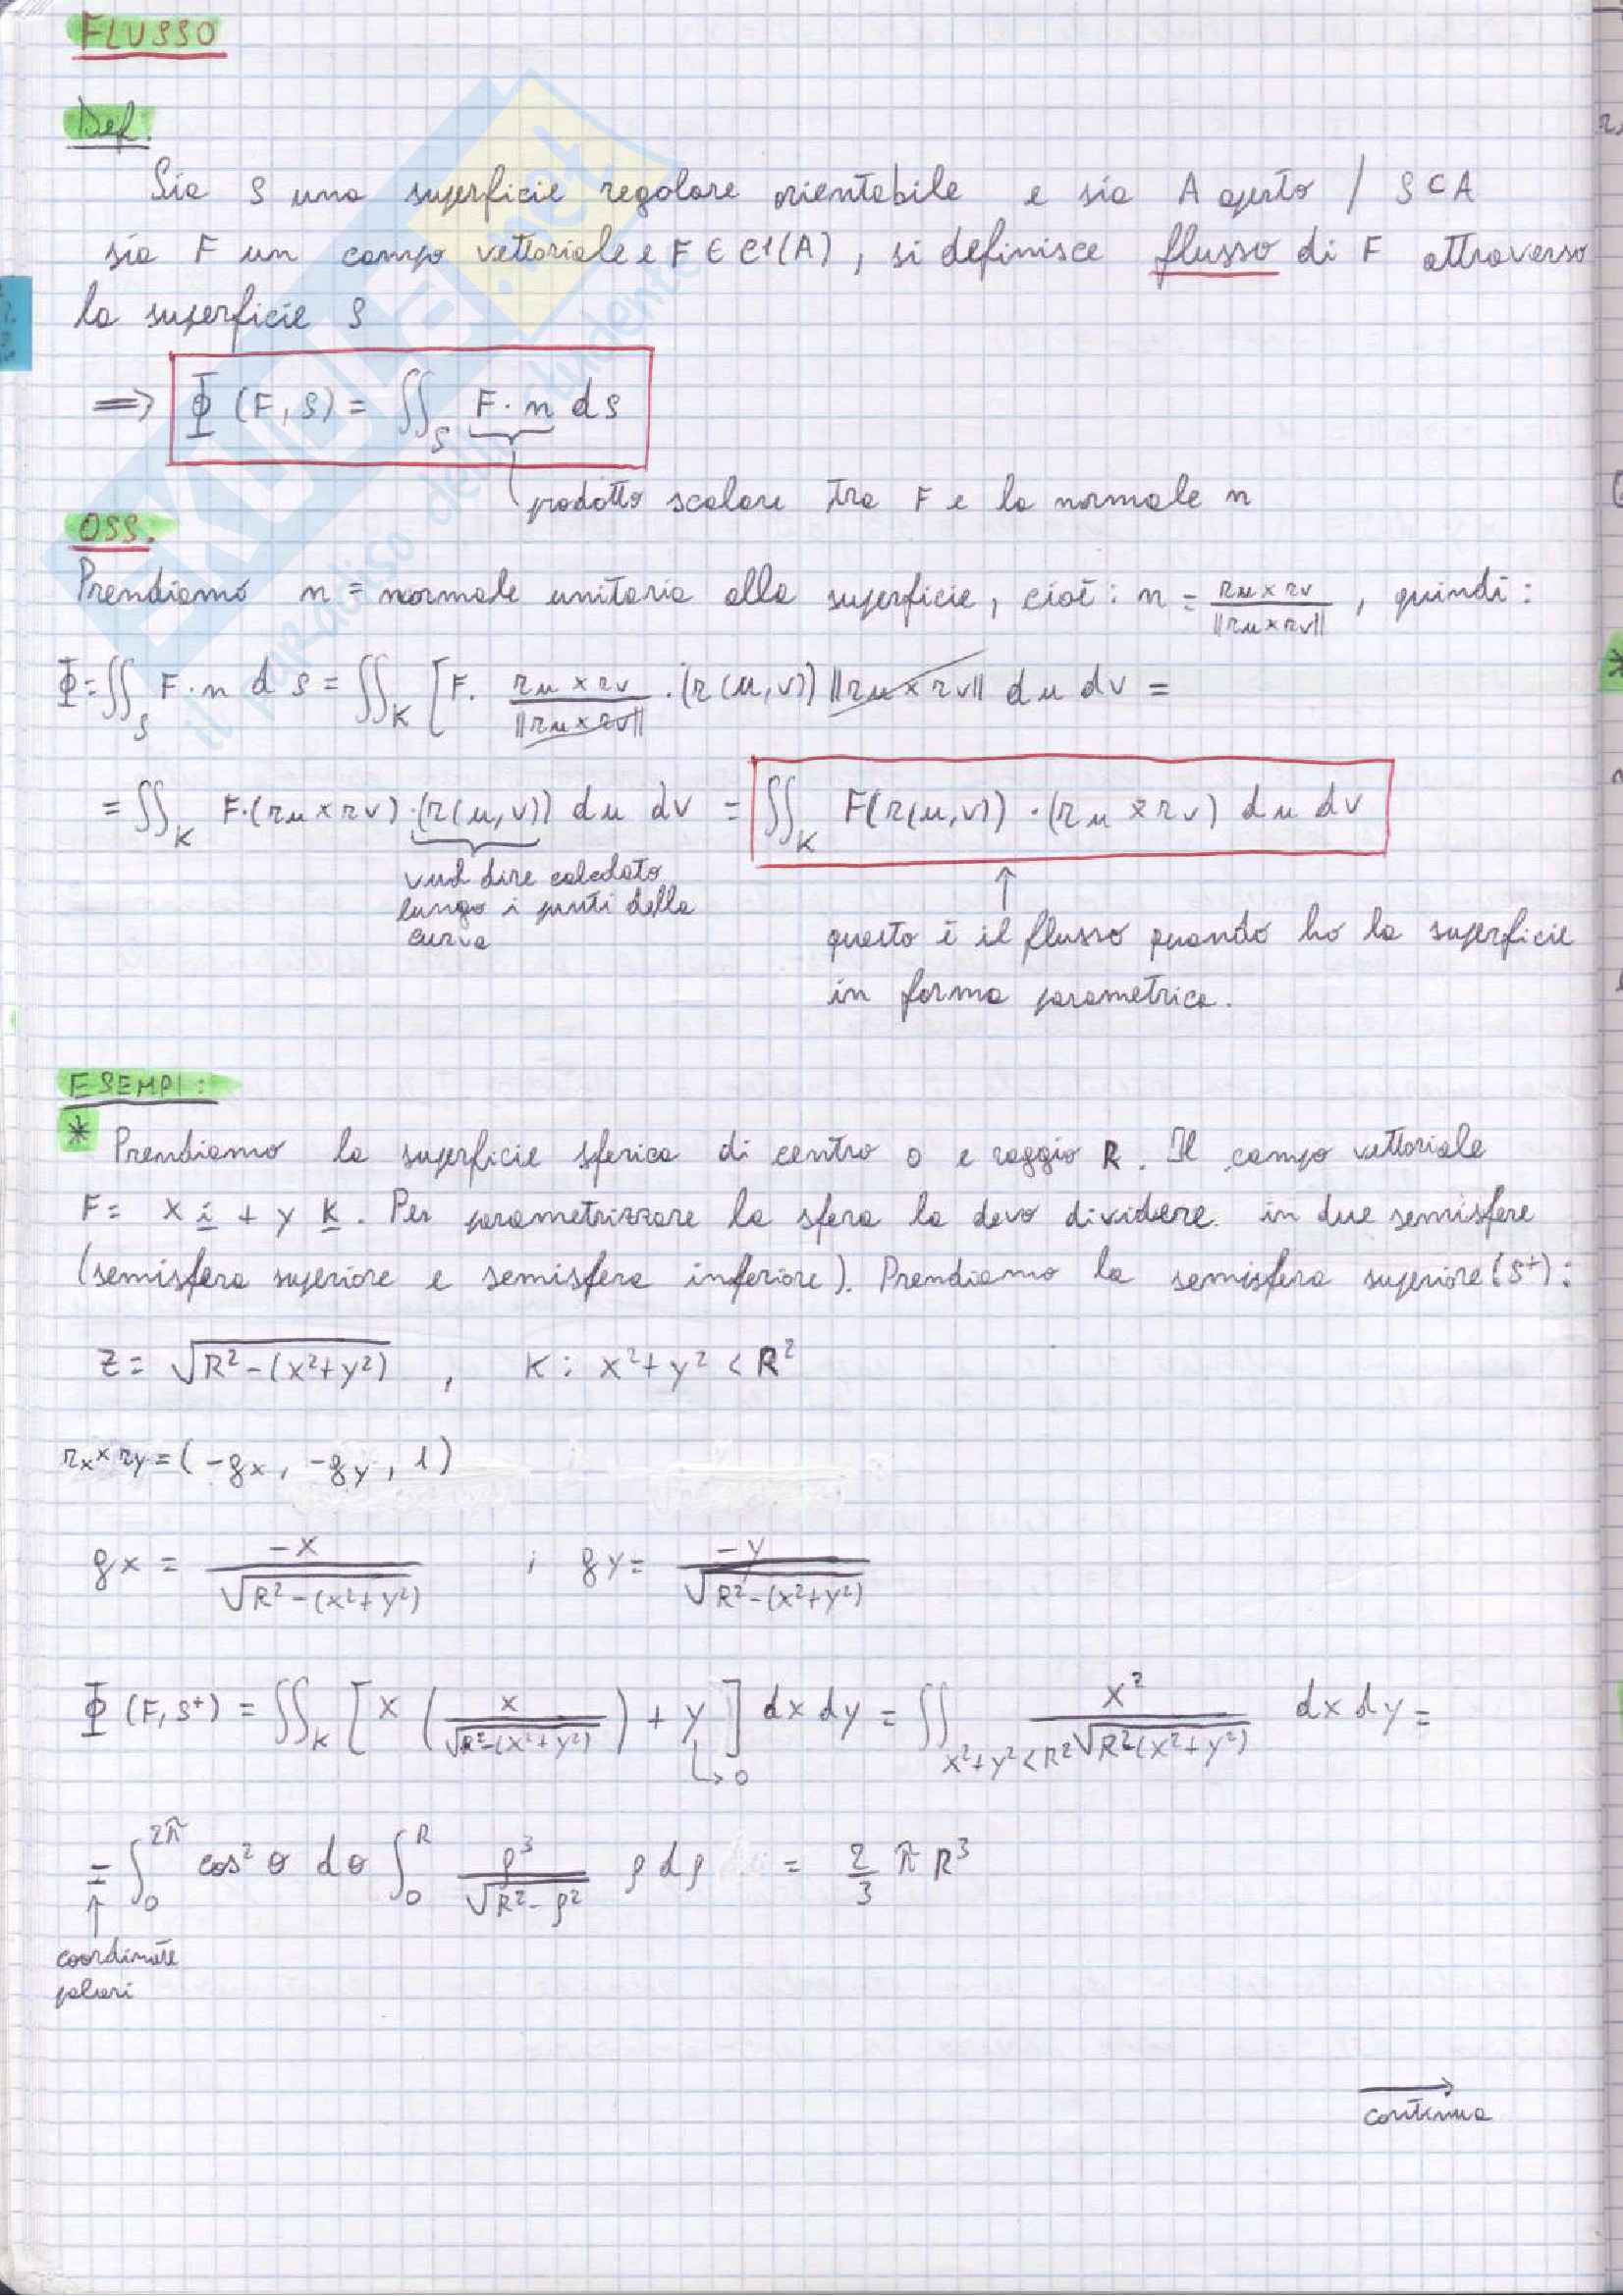 FLUSSO
Def.
Sia S una superficie regolare orientabile e sia A aperto / S ⊂ A
sia F un campo vettoriale e F ∈ C1(A), si definisce flusso di F attraverso
la superficie S
=> Φ (F, S) = ∬_S F · n dS
prodotto scalare tra F e la normale n
OSS.
Prendiamo n = normale unitaria alla superficie, cioè: n = (ru × rv) / ||ru × rv|| , quindi:
Φ = ∬_S F · n dS = ∬_K [F · (ru × rv) / ||ru × rv|| · (r(u,v)) ||ru × rv|| du dv =
= ∬_K F · (ru × rv) · (r(u,v)) du dv = ∬_K F(r(u,v)) · (ru × rv) du dv
vuol dire calcolato
lungo i punti della
curva
questo è il flusso quando ho la superficie
in forma parametrica.
ESEMPI:
* Prendiamo la superficie sferica di centro 0 e raggio R. Il campo vettoriale
F = x i + y k. Per parametrizzare la sfera la devo dividere in due semisfere
(semisfera superiore e semisfera inferiore). Prendiamo la semisfera superiore (S⁺):
z = √(R² - (x² + y²)) , K : x² + y² < R²
rx × ry = (-gx, -gy, 1)
gx = -x / √(R² - (x² + y²)) ; gy = -y / √(R² - (x² + y²))
Φ (F, S⁺) = ∬_K [x (x / √(R² - (x² + y²))) + y] dx dy = ∬_{x² + y² < R²} x² / √(R² - (x² + y²)) dx dy =
↳ 0
= ∫₀^{2π} cos² θ dθ ∫₀^R ρ³ / √(R² - ρ²) ρ dρ = 2/3 π R³
↑
coordinate
polari
continua
EKUOLA.net
il paradiso dello studente